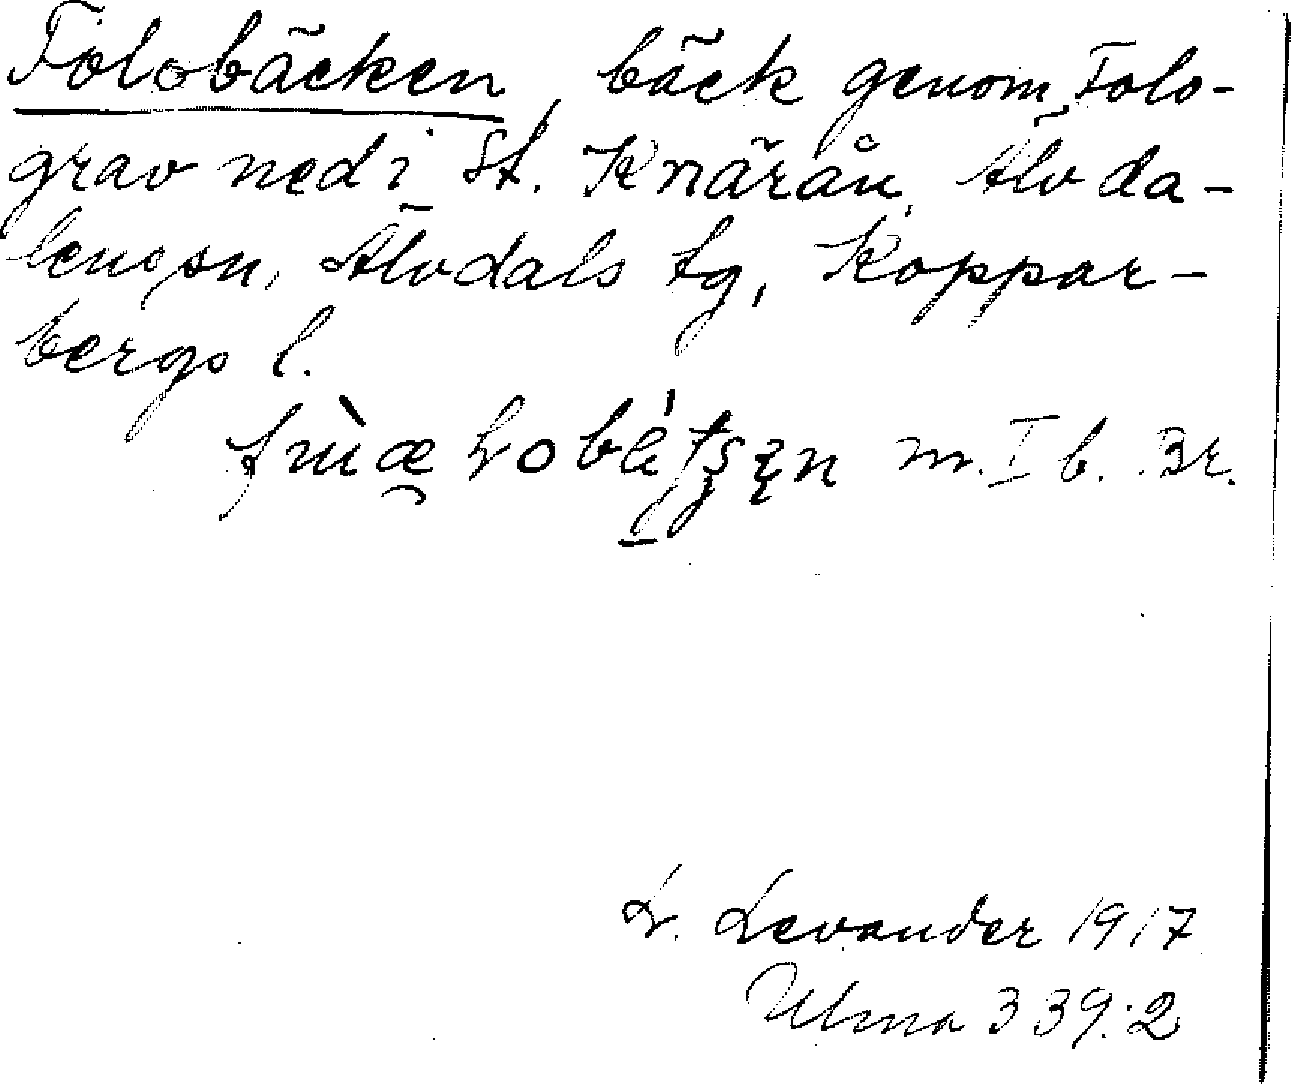 Folobäcken, bäck genom Folo-
grav ned i St. Knärån, Älvda-
lens sn, Älvdals tg, Koppar-
bergs l.
m. I b. Br.
L. Levander 1917
Ulma 339:2